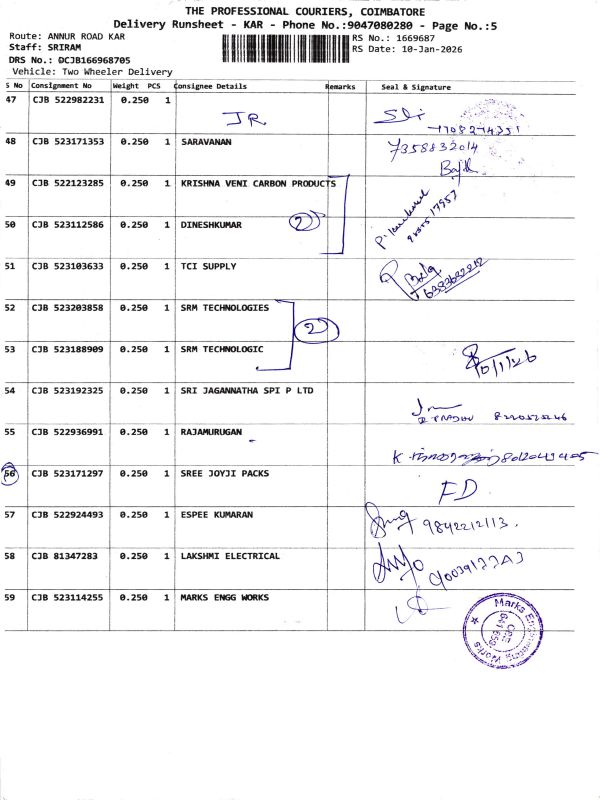 THE PROFESSIONAL COURIERS, COIMBATORE
Delivery Runsheet - KAR - Phone No.:9047080280 - Page No.:5
Route: ANNUR ROAD KAR RS No.: 1669687
Staff: SRIRAM RS Date: 10-Jan-2026
DRS No.: 0CJB166968705
Vehicle: Two Wheeler Delivery
S No Consignment No Weight PCS Consignee Details Remarks Seal & Signature
47 CJB 522982231 0.250 1
JR
48 CJB 523171353 0.250 1 SARAVANAN 7358832014
49 CJB 522123285 0.250 1 KRISHNA VENI CARBON PRODUCTS
50 CJB 523112586 0.250 1 DINESHKUMAR 2
51 CJB 523103633 0.250 1 TCI SUPPLY
52 CJB 523203858 0.250 1 SRM TECHNOLOGIES
2
53 CJB 523188909 0.250 1 SRM TECHNOLOGIC 10/1/26
54 CJB 523192325 0.250 1 SRI JAGANNATHA SPI P LTD
55 CJB 522936991 0.250 1 RAJAMURUGAN
56 CJB 523171297 0.250 1 SREE JOYJI PACKS FD
57 CJB 522924493 0.250 1 ESPEE KUMARAN 9842212113.
58 CJB 81347283 0.250 1 LAKSHMI ELECTRICAL
59 CJB 523114255 0.250 1 MARKS ENGG WORKS
Marks Engineering Works
CBE
641 659